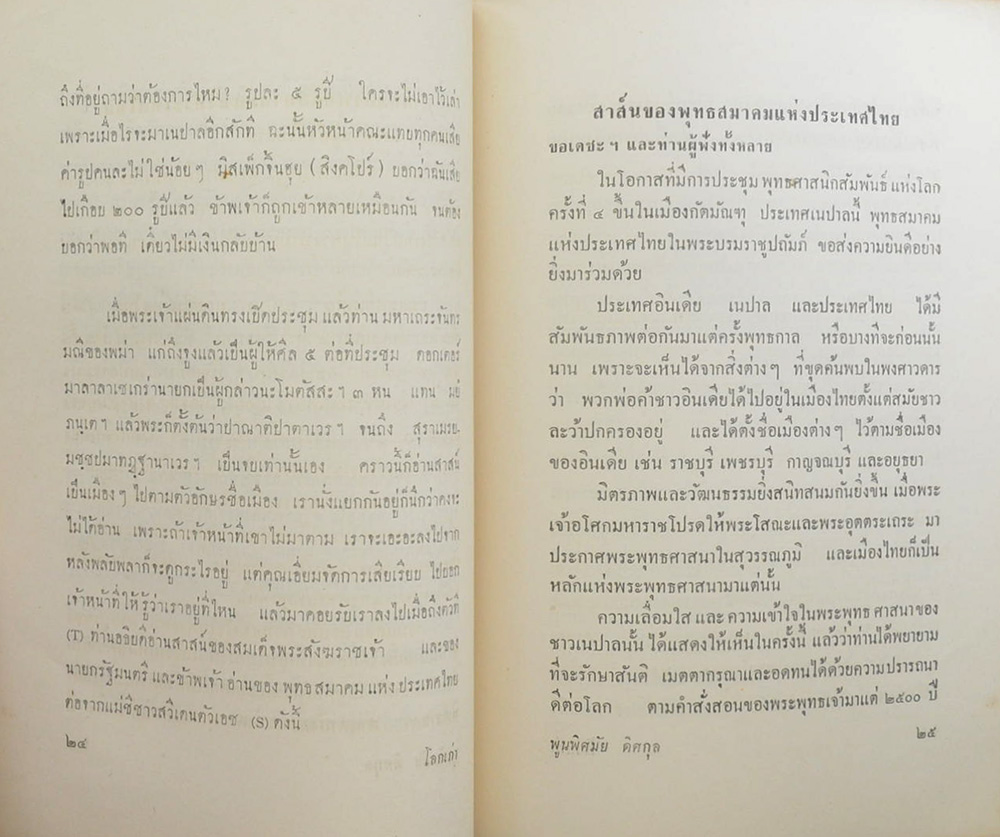 ถึงที่อยู่ถามว่าต้องการไหม? รูปละ ๕ รูปี ใครจะไม่เอาไว้เล่า
เพราะเมื่อไรจะมาเนปาลอีกสักที ฉะนั้นหัวหน้าคณะแทบทุกคนเสีย
ค่ารูปคนละไม่ใช่น้อย ๆ มิสเพ็กจิ้นฮุย (สิงคโปร์) บอกว่าฉันเสีย
ไปเกือบ ๒๐๐ รูปีแล้ว ข้าพเจ้าก็ถูกเข้าหลายเหมือนกัน จนต้อง
บอกว่าพอที เดี๋ยวไม่มีเงินกลับบ้าน
เมื่อพระเจ้าแผ่นดินทรงเปิดประชุม แล้วท่าน มหาเถระจันทร
มณีของพม่า แก่ถึงจูงแล้วเป็นผู้ให้ศีล ๕ ต่อที่ประชุม ดอกเตอร์
มาลาลาเซเกร่านายกเป็นผู้กล่าวนะโมตัสสะ ฯ ๓ หน แทน มยํ
ภนฺเต ฯ แล้วพระก็ตั้งต้นว่าปาณาติปาตาเวร ฯ จนถึง สุราเมรย-
มชฺชปมาทฏฺฐานาเวร ฯ เป็นจบเท่านั้นเอง คราวนี้ก็อ่านสาส์น
เป็นเมือง ๆ ไปตามตัวอักษรชื่อเมือง เรานั่งแยกกันอยู่ก็นึกว่าคงจะ
ไม่ได้อ่าน เพราะถ้าเจ้าหน้าที่เขาไม่มาตาม เราจะเอะอะลงไปจาก
หลังพลับพลาก็จะดูกระไรอยู่ แต่คุณเอี่ยมจัดการเสียเรียบ ไปบอก
เจ้าหน้าที่ให้รู้ว่าเราอยู่ที่ไหน แล้วมาคอยรับเราลงไปเมื่อถึงตัวที
(T) ท่านอธิบดีอ่านสาส์นของสมเด็จพระสังฆราชเจ้า และของ
นายกรัฐมนตรี และข้าพเจ้า อ่านของ พุทธ สมาคม แห่ง ประเทศไทย
ต่อจากแม่ชีชาวสวีเดนตัวเอช (S) ดังนี้
๒๔
โลกเก่า
สาส์นของพุทธสมาคมแห่งประเทศไทย
ขอเดชะ ฯ และท่านผู้ฟังทั้งหลาย
ในโอกาสที่มีการประชุม พุทธศาสนิกสัมพันธ์ แห่งโลก
ครั้งที่ ๔ ขึ้นในเมืองกัตมัณฑุ ประเทศเนปาลนี้ พุทธสมาคม
แห่งประเทศไทยในพระบรมราชูปถัมภ์ ขอส่งความยินดีอย่าง
ยิ่งมาร่วมด้วย
ประเทศอินเดีย เนปาล และประเทศไทย ได้มี
สัมพันธภาพต่อกันมาแต่ครั้งพุทธกาล หรือบางทีจะก่อนนั้น
นาน เพราะจะเห็นได้จากสิ่งต่าง ๆ ที่ขุดค้นพบในพงศาวดาร
ว่า พวกพ่อค้าชาวอินเดียได้ไปอยู่ในเมืองไทยตั้งแต่สมัยชาว
ละว้าปกครองอยู่ และได้ตั้งชื่อเมืองต่าง ๆ ไว้ตามชื่อเมือง
ของอินเดีย เช่น ราชบุรี เพชรบุรี กาญจณบุรี และอยุธยา
มิตรภาพและวัฒนธรรมยิ่งสนิทสนมกันยิ่งขึ้น เมื่อพระ
เจ้าอโศกมหาราชโปรดให้พระโสณะและพระอุตตระเถระ มา
ประกาศพระพุทธศาสนาในสุวรรณภูมิ และเมืองไทยก็เป็น
หลักแห่งพระพุทธศาสนามาแต่นั้น
ความเลื่อมใส และ ความเข้าใจในพระพุทธ ศาสนาของ
ชาวเนปาลนั้น ได้แสดงให้เห็นในครั้งนี้ แล้วว่าท่านได้พยายาม
ที่จะรักษาสันติ เมตตากรุณาและอดทนได้ด้วยความปรารถนา
ดีต่อโลก ตามคำสั่งสอนของพระพุทธเจ้ามาแต่ ๒๕๐๐ ปี
พูนพิศมัย ดิศกุล
๒๕